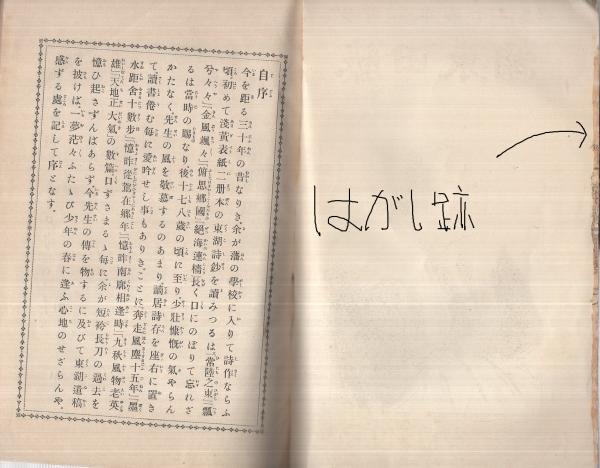 はがし跡
自序
今を距る三十年の昔なりき、余が藩の學校に入りて詩作ならふ
頃初めて淺黄表紙二册本の東湖詩鈔を讀みつるは、「常陸之東」「瓢
兮々々」「金風颯々」「俯思鄕國」「絕海連檣長く口にのぼりて忘れざ
るは當時の賜なり後十七八歲の頃に至り少壯慷慨の氣やらん
かたなく先生の風を敬慕するのあまり謫居詩存を座右に置き
て、讀書倦む每に愛吟せし事もありき、ことに「奔走風塵十五年」「墨
水距舍十數步」「憶昨從駕在鄕年」「憶昨南廓相逢時」「九秋風物老英
雄」「天地正大氣の數篇口ずさまるゝ每に余が短袴長刀の過去を
憶ひ起さずんばあらず今先生の傳を物するに及びて東湖遺稿
を披けば、一夢茫々ふたゝび少年の春に逢ふ心地のせざらんや、
感ずる處を記して序となす。